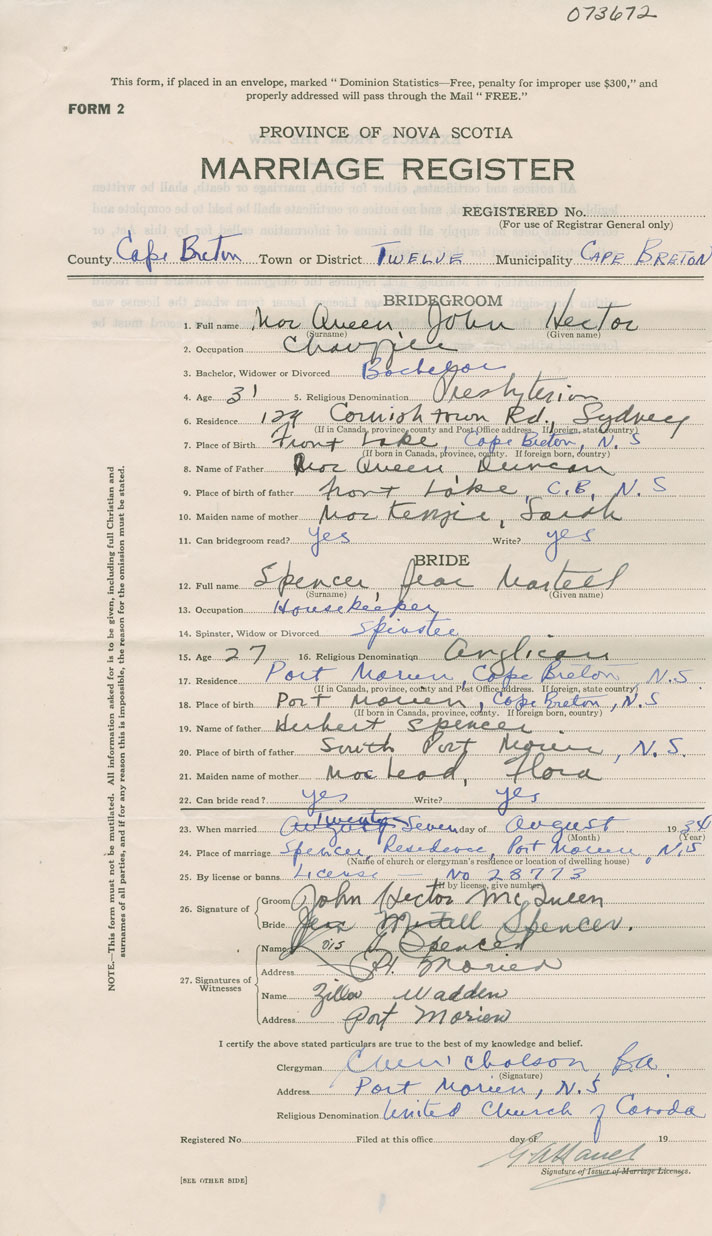 073672
This form, if placed in an envelope, marked “ Dominion Statistics—Free, penalty for improper use $300,” and
properly addressed will pass through the Mail “ FREE.”
FORM 2
PROVINCE OF NOVA SCOTIA
MARRIAGE REGISTER
REGISTERED No.
(For use of Registrar General only)
County Cape Breton Town or District TWELVE Municipality CAPE BRETON
BRIDEGROOM
1. Full name MacQueen, John Hector
(Surname) (Given name)
2. Occupation
3. Bachelor, Widower or Divorced Bachelor
4. Age 31 5. Religious Denomination Presbyterian
6. Residence 129 Cornishtown Rd., Sydney
(If in Canada, province, county and Post Office address. If foreign, state country)
7. Place of Birth Front Lake, Cape Breton, N.S
(If born in Canada, province, county. If foreign born, country)
8. Name of Father MacQueen Duncan
9. Place of birth of father Front Lake, C.B, N.S
10. Maiden name of mother MacKenzie, Sarah
11. Can bridegroom read? yes Write? yes
BRIDE
12. Full name Spencer, Jean Martell
(Surname) (Given name)
13. Occupation Housekeeper
14. Spinster, Widow or Divorced Spinster
15. Age 27 16. Religious Denomination Anglican
17. Residence Port Morien, Cape Breton, N.S
(If in Canada, province, county and Post Office address. If foreign, state country)
18. Place of birth Port Morien, Cape Breton, N.S
(If born in Canada, province, county. If foreign born, country)
19. Name of father Herbert Spencer
20. Place of birth of father South Port Morien, N.S.
21. Maiden name of mother MacLeod, Flora
22. Can bride read? yes Write? yes
23. When married Twenty Seven day of August 1934
(Month) (Year)
24. Place of marriage Spencer Residence, Port Morien, N.S
(Name of church or clergyman's residence or location of dwelling house)
25. By license or banns License — No 28773
(If by license, give number)
26. Signature of Groom John Hector McQueen
Bride Jean Martell Spencer.
27. Signatures of Witnesses
Name Spencer
Address Pt. Morien
Name Zilla Wadden
Address Port Morien
I certify the above stated particulars are true to the best of my knowledge and belief.
Clergyman
(Signature)
Address Port Morien, N.S
Religious Denomination United Church of Canada
Registered No. Filed at this office day of 19
Signature of Issuer of Marriage Licenses.
[SEE OTHER SIDE]
NOTE.—This form must not be mutilated. All information asked for is to be given, including full Christian and
surnames of all parties, and if for any reason this is impossible, the reason for the omission must be stated.